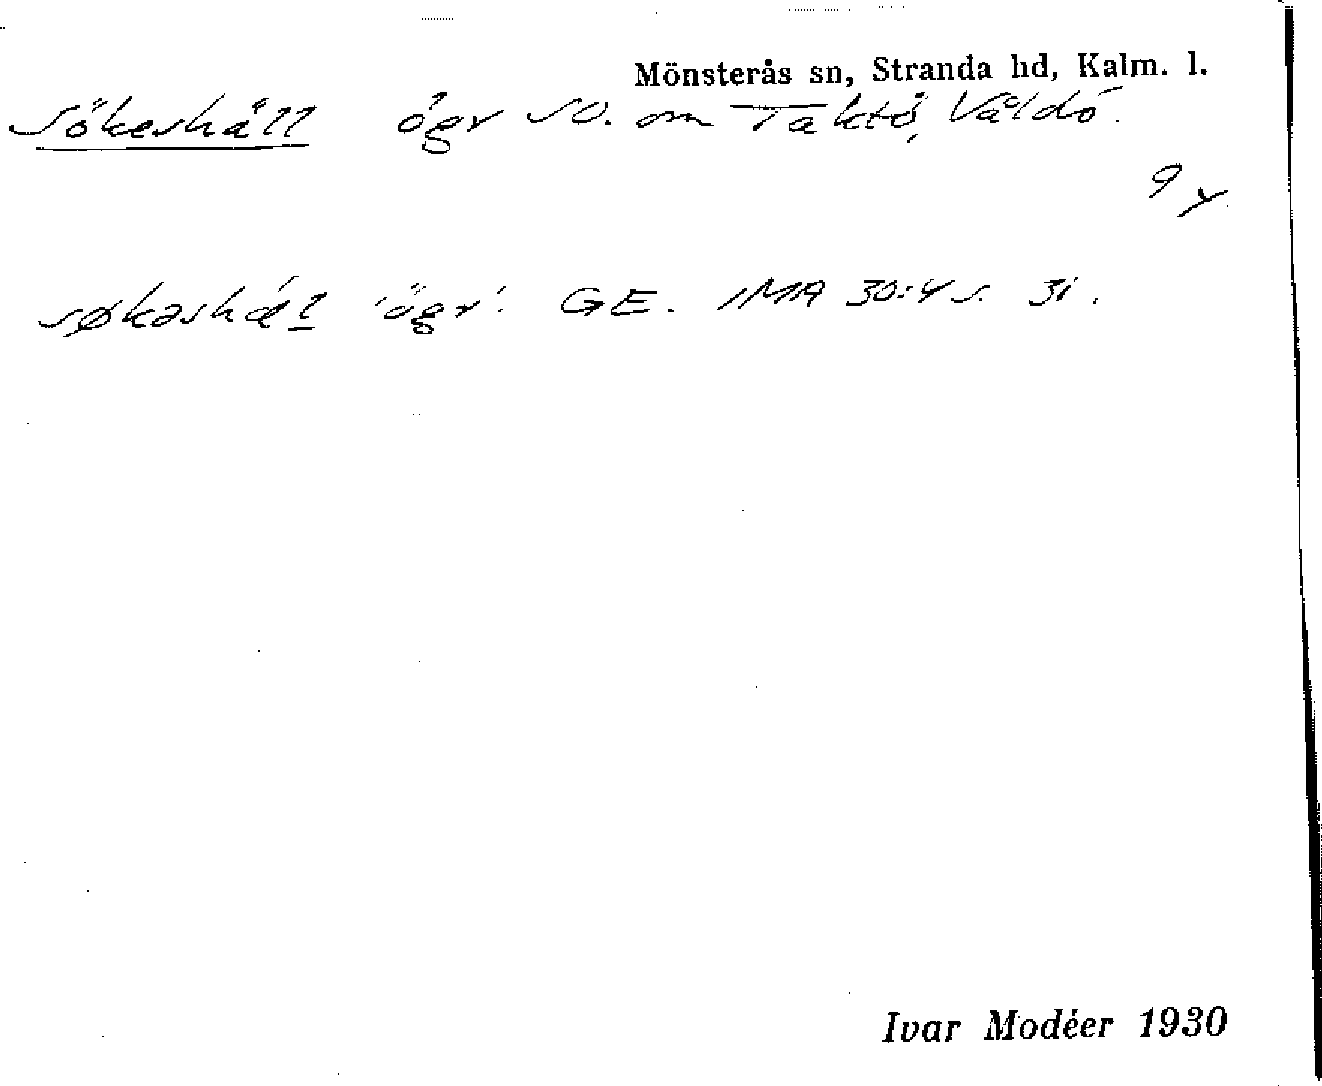 Mönsterås sn, Stranda hd, Kalm. l.
Sökeskåll ögr SO. om Taktö, Våldö.
9 y
søkəskál 'ögr'. GE. IMA 30:4 s. 31.
Ivar Modéer 1930